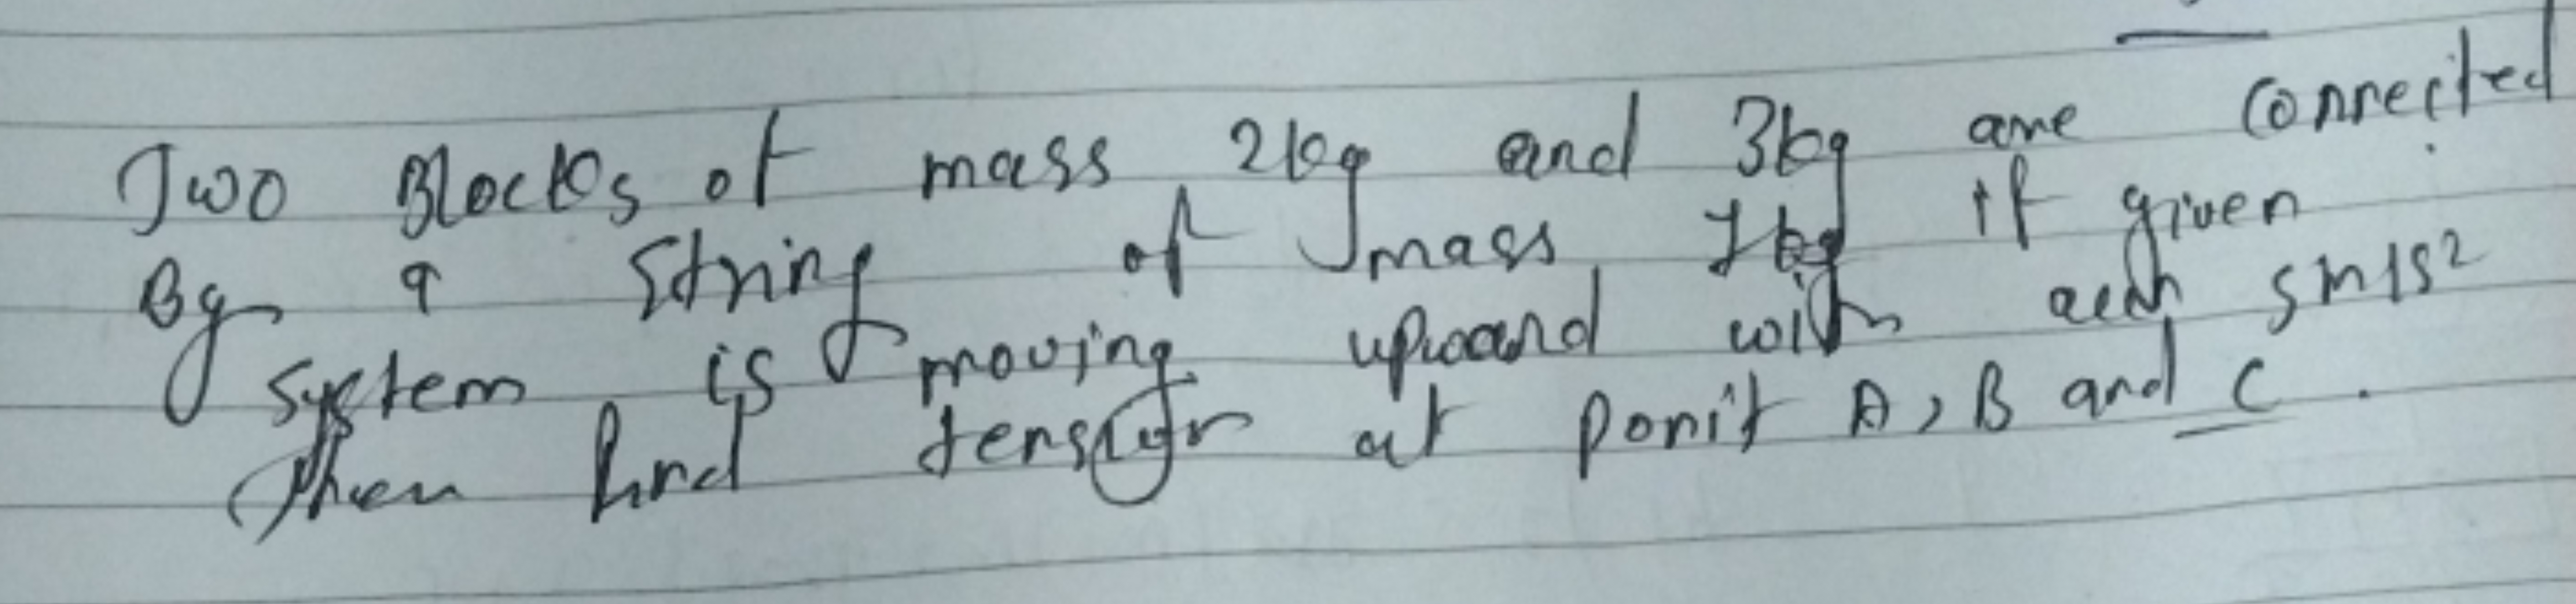 Two Blocks of mass 2kg and 3kg are connected
By a string of mass 1kg if given
system is moving upward with accn 5m/s²
then find tension at ponit A, B and C.